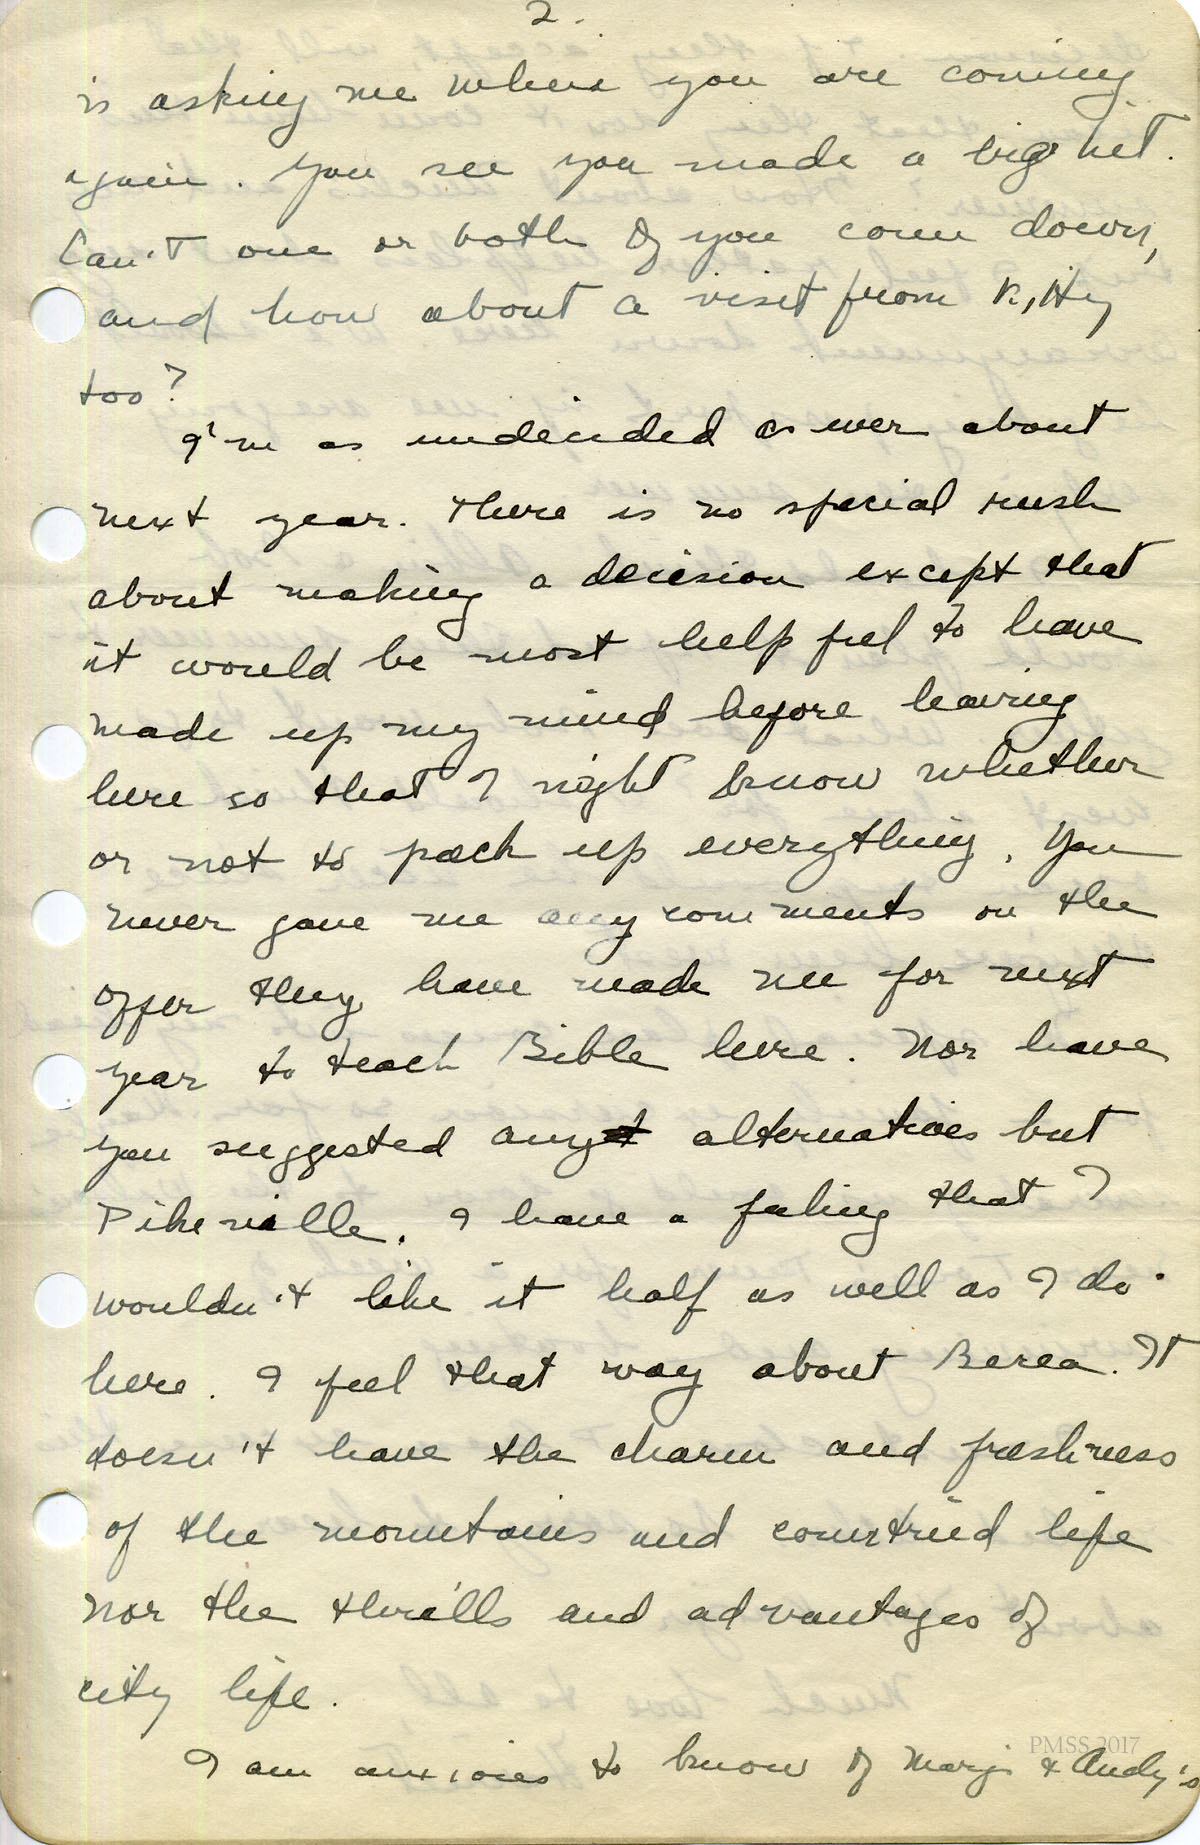 2.
is asking me when you are coming
again. You see you made a big hit.
Can't one or both of you come down,
and how about a visit from Kitty
too?
I'm as undecided as ever about
next year. There is no special rush
about making a decision except that
it would be most helpful to have
made up my mind before leaving
here so that I might know whether
or not to pack up everything. You
never gave me any comments on the
offer they have made me for next
year to teach Bible here. Nor have
you suggested any alternatives but
Pikeville. I have a feeling that I
wouldn't like it half as well as I do
here. I feel that way about Berea. It
doesn't have the charm and freshness
of the mountains and country life
nor the thrills and advantages of
city life.
I am anxious to know of Marj & Andy's
PMSS 2017